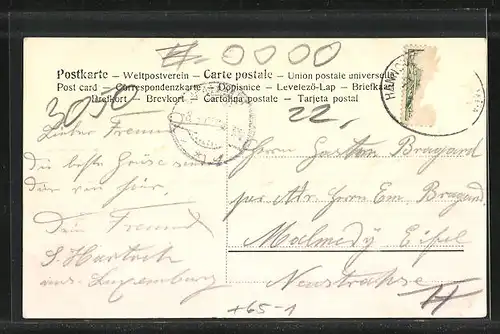 #.0000
Postkarte – Weltpostverein – Carte postale – Union postale universelle
Post card – Correspondenzkarte – Dopisnice – Levelező-Lap – Briefkaart
Brefkort – Brevkort – Cartolina postale – Tarjeta postal
3050
22,
Lieber Freund
Die beste Grüse sendet
Dir von hier,
Dein Freund
S. Hartoch
aus Luxemburg
Herrn Gaston Bragard
per Adr. Herrn Em. Bragard
Malmedy Eifel
Neustrahse
+65-1